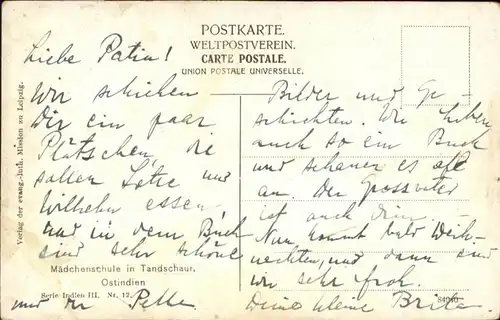 POSTKARTE.
WELTPOSTVEREIN.
CARTE POSTALE.
UNION POSTALE UNIVERSELLE.
Liebe Patin!
Wir schicken
Dir ein paar
Plätschen, die
sollen Lotte und
Wilhelm essen,
und in dem Buch
sind sehr schöne
Bilder und Ge-
schichten. Wir haben
auch so ein Buch
und schauen es oft
an. Der Grossvater
ist auch drin.
Nun kommt bald Weih-
nachten, und dann sind
wir sehr froh.
Deine kleine
und der
Mädchenschule in Tandschaur.
Ostindien
Serie Indien III, Nr. 12.
84040
Verlag der evang.-luth. Mission zu Leipzig.